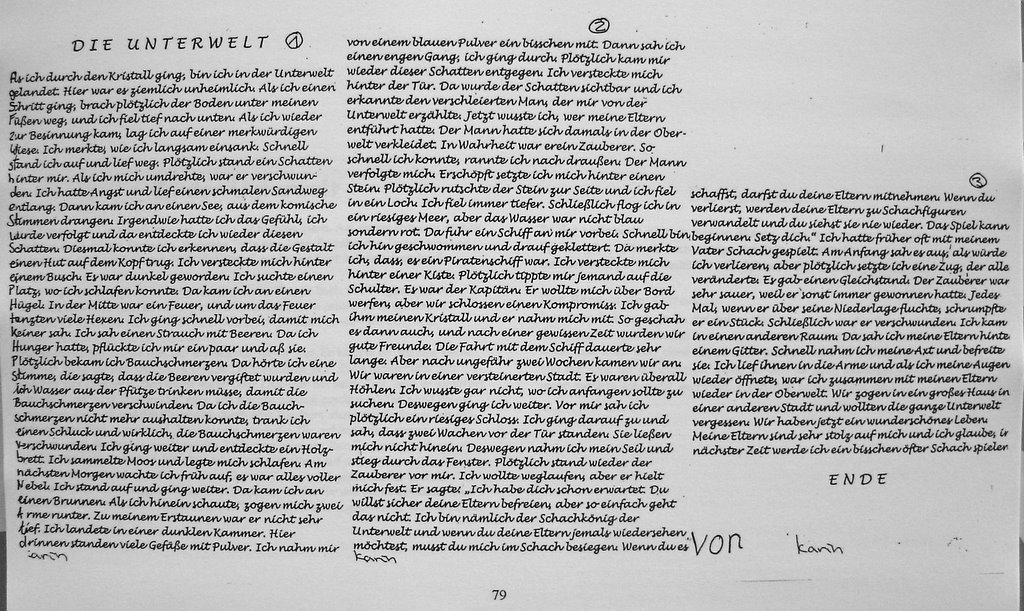 DIE UNTERWELT 1
Als ich durch den Kristall ging, bin ich in der Unterwelt
gelandet. Hier war es ziemlich unheimlich. Als ich einen
Schritt ging, brach plötzlich der Boden unter meinen
Füßen weg, und ich fiel tief nach unten. Als ich wieder
zur Besinnung kam, lag ich auf einer merkwürdigen
Wiese. Ich merkte, wie ich langsam einsank. Schnell
stand ich auf und lief weg. Plötzlich stand ein Schatten
hinter mir. Als ich mich umdrehte, war er verschwun-
den. Ich hatte Angst und lief einen schmalen Sandweg
entlang. Dann kam ich an einen See, aus dem komische
Stimmen drangen. Irgendwie hatte ich das Gefühl, ich
würde verfolgt und da entdeckte ich wieder diesen
Schatten. Diesmal konnte ich erkennen, dass die Gestalt
einen Hut auf dem Kopf trug. Ich versteckte mich hinter
einem Busch. Es war dunkel geworden. Ich suchte einen
Platz, wo ich schlafen konnte. Da kam ich an einen
Hügel. In der Mitte war ein Feuer, und um das Feuer
tanzten viele Hexen. Ich ging schnell vorbei, damit mich
keiner sah. Ich sah einen Strauch mit Beeren. Da ich
Hunger hatte, pflückte ich mir ein paar und aß sie.
Plötzlich bekam ich Bauchschmerzen. Da hörte ich eine
Stimme, die sagte, dass die Beeren vergiftet wurden und
ich Wasser aus der Pfütze trinken müsse, damit die
Bauchschmerzen verschwinden. Da ich die Bauch-
schmerzen nicht mehr aushalten konnte, trank ich
einen Schluck und wirklich, die Bauchschmerzen waren
verschwunden. Ich ging weiter und entdeckte ein Holz-
brett. Ich sammelte Moos und legte mich schlafen. Am
nächsten Morgen wachte ich früh auf, es war alles voller
Nebel. Ich stand auf und ging weiter. Da kam ich an
einen Brunnen. Als ich hinein schaute, zogen mich zwei
Arme runter. Zu meinem Erstaunen war er nicht sehr
tief. Ich landete in einer dunklen Kammer. Hier
drinnen standen viele Gefäße mit Pulver. Ich nahm mir
karin
2
von einem blauen Pulver ein bisschen mit. Dann sah ich
einen engen Gang, ich ging durch. Plötzlich kam mir
wieder dieser Schatten entgegen. Ich versteckte mich
hinter der Tür. Da wurde der Schatten sichtbar und ich
erkannte den verschleierten Man, der mir von der
Unterwelt erzählte. Jetzt wusste ich, wer meine Eltern
entführt hatte. Der Mann hatte sich damals in der Ober-
welt verkleidet. In Wahrheit war erein Zauberer. So
schnell ich konnte, rannte ich nach draußen. Der Mann
verfolgte mich. Erschöpft setzte ich mich hinter einen
Stein. Plötzlich rutschte der Stein zur Seite und ich fiel
in ein Loch. Ich fiel immer tiefer. Schließlich flog ich in
ein riesiges Meer, aber das Wasser war nicht blau
sondern rot. Da fuhr ein Schiff an mir vorbei. Schnell bin
ich hin geschwommen und drauf geklettert. Da merkte
ich, dass, es ein Piratenschiff war. Ich versteckte mich
hinter einer Kiste. Plötzlich tippte mir jemand auf die
Schulter. Es war der Kapitän. Er wollte mich über Bord
werfen, aber wir schlossen einen Kompromiss. Ich gab
ihm meinen Kristall und er nahm mich mit. So geschah
es dann auch, und nach einer gewissen Zeit wurden wir
gute Freunde. Die Fahrt mit dem Schiff dauerte sehr
lange. Aber nach ungefähr zwei Wochen kamen wir an.
Wir waren in einer versteinerten Stadt. Es waren überall
Höhlen. Ich wusste gar nicht, wo ich anfangen sollte zu
suchen. Deswegen ging ich weiter. Vor mir sah ich
plötzlich ein riesiges Schloss. Ich ging darauf zu und
sah, dass zwei Wachen vor der Tür standen. Sie ließen
mich nicht hinein. Deswegen nahm ich mein Seil und
stieg durch das Fenster. Plötzlich stand wieder der
Zauberer vor mir. Ich wollte weglaufen, aber er hielt
mich fest. Er sagte: „Ich habe dich schon erwartet. Du
willst sicher deine Eltern befreien, aber so einfach geht
das nicht. Ich bin nämlich der Schachkönig der
Unterwelt und wenn du deine Eltern jemals wiedersehen
möchtest, musst du mich im Schach besiegen. Wenn du es
karin
3
schaffst, darfst du deine Eltern mitnehmen. Wenn du
verlierst, werden deine Eltern zu Schachfiguren
verwandelt und du siehst sie nie wieder. Das Spiel kann
beginnen. Setz dich.“ Ich hatte früher oft mit meinem
Vater Schach gespielt. Am Anfang sah es auf, als würde
ich verlieren, aber plötzlich setzte ich eine Zug, der alle
veränderte. Es gab einen Gleichstand. Der Zauberer war
sehr sauer, weil er sonst immer gewonnen hatte. Jedes
Mal, wenn er über seine Niederlage fluchte, schrumpfte
er ein Stück. Schließlich war er verschwunden. Ich kam
in einen anderen Raum. Da sah ich meine Eltern hinte
einem Gitter. Schnell nahm ich meine Axt und befreite
sie. Ich lief ihnen in die Arme und als ich meine Augen
wieder öffnete, war ich zusammen mit meinen Eltern
wieder in der Oberwelt. Wir zogen in ein großes Haus in
einer anderen Stadt und wollten die ganze Unterwelt
vergessen. Wir haben jetzt ein wunderschönes Leben.
Meine Eltern sind sehr stolz auf mich und ich glaube, ir
nächster Zeit werde ich ein bisschen öfter Schach spieler
ENDE
von karin
79